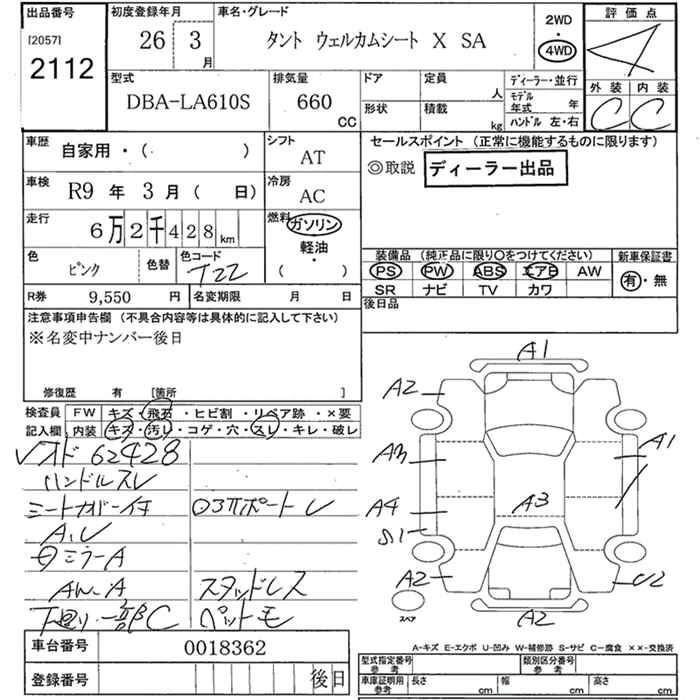 出品番号
[2057]
2112
初度登録年月
26 3
月
車名・グレード
タント ウェルカムシート X SA
2WD
・
4WD
評価点
4
外装 内装
C C
型式
DBA-LA610S
排気量
660
CC
ドア
形状
定員
人
積載
kg
ディーラー・並行
モデル
年式 年
ハンドル 左・右
車歴
自家用・( )
シフト
AT
車検
R9 年 3 月 ( 日)
冷房
AC
走行
6万2千428km
燃料
ガソリン
軽油
・
( )
色
ピンク
色替
色コード
T22
R券 9,550 円
名変期限 月 日
セールスポイント (正常に機能するものに限ります)
◎取説 ディーラー出品
装備品 (純正品に限り○をつけてください)
PS PW ABS エアB AW
SR ナビ TV カワ
新車保証書
有・無
後日品
注意事項申告欄 (不具合内容等は具体的に記入して下さい)
※名変中ナンバー後日
修復歴 有 [箇所 ]
検査員
記入欄
FW キズ・飛石・ヒビ割・リペア跡・×要
内装 キズ・汚レ・コゲ・穴・スレ・キレ・破レ
62428
ハンドルスレ
A
スタッドレス
ペットモ
下廻り一部C
車台番号 0018362
登録番号 後日
A1
A2
A3
A4
S1
A2
A1
A3
U2
A2
スペア
A-キズ E-エクボ U-凹み W-補修跡 S-サビ C-腐食 ××-交換済
型式指定番号
参考
類別区分番号
参考
車庫証明用
参考
長さ cm
幅 cm
高さ cm